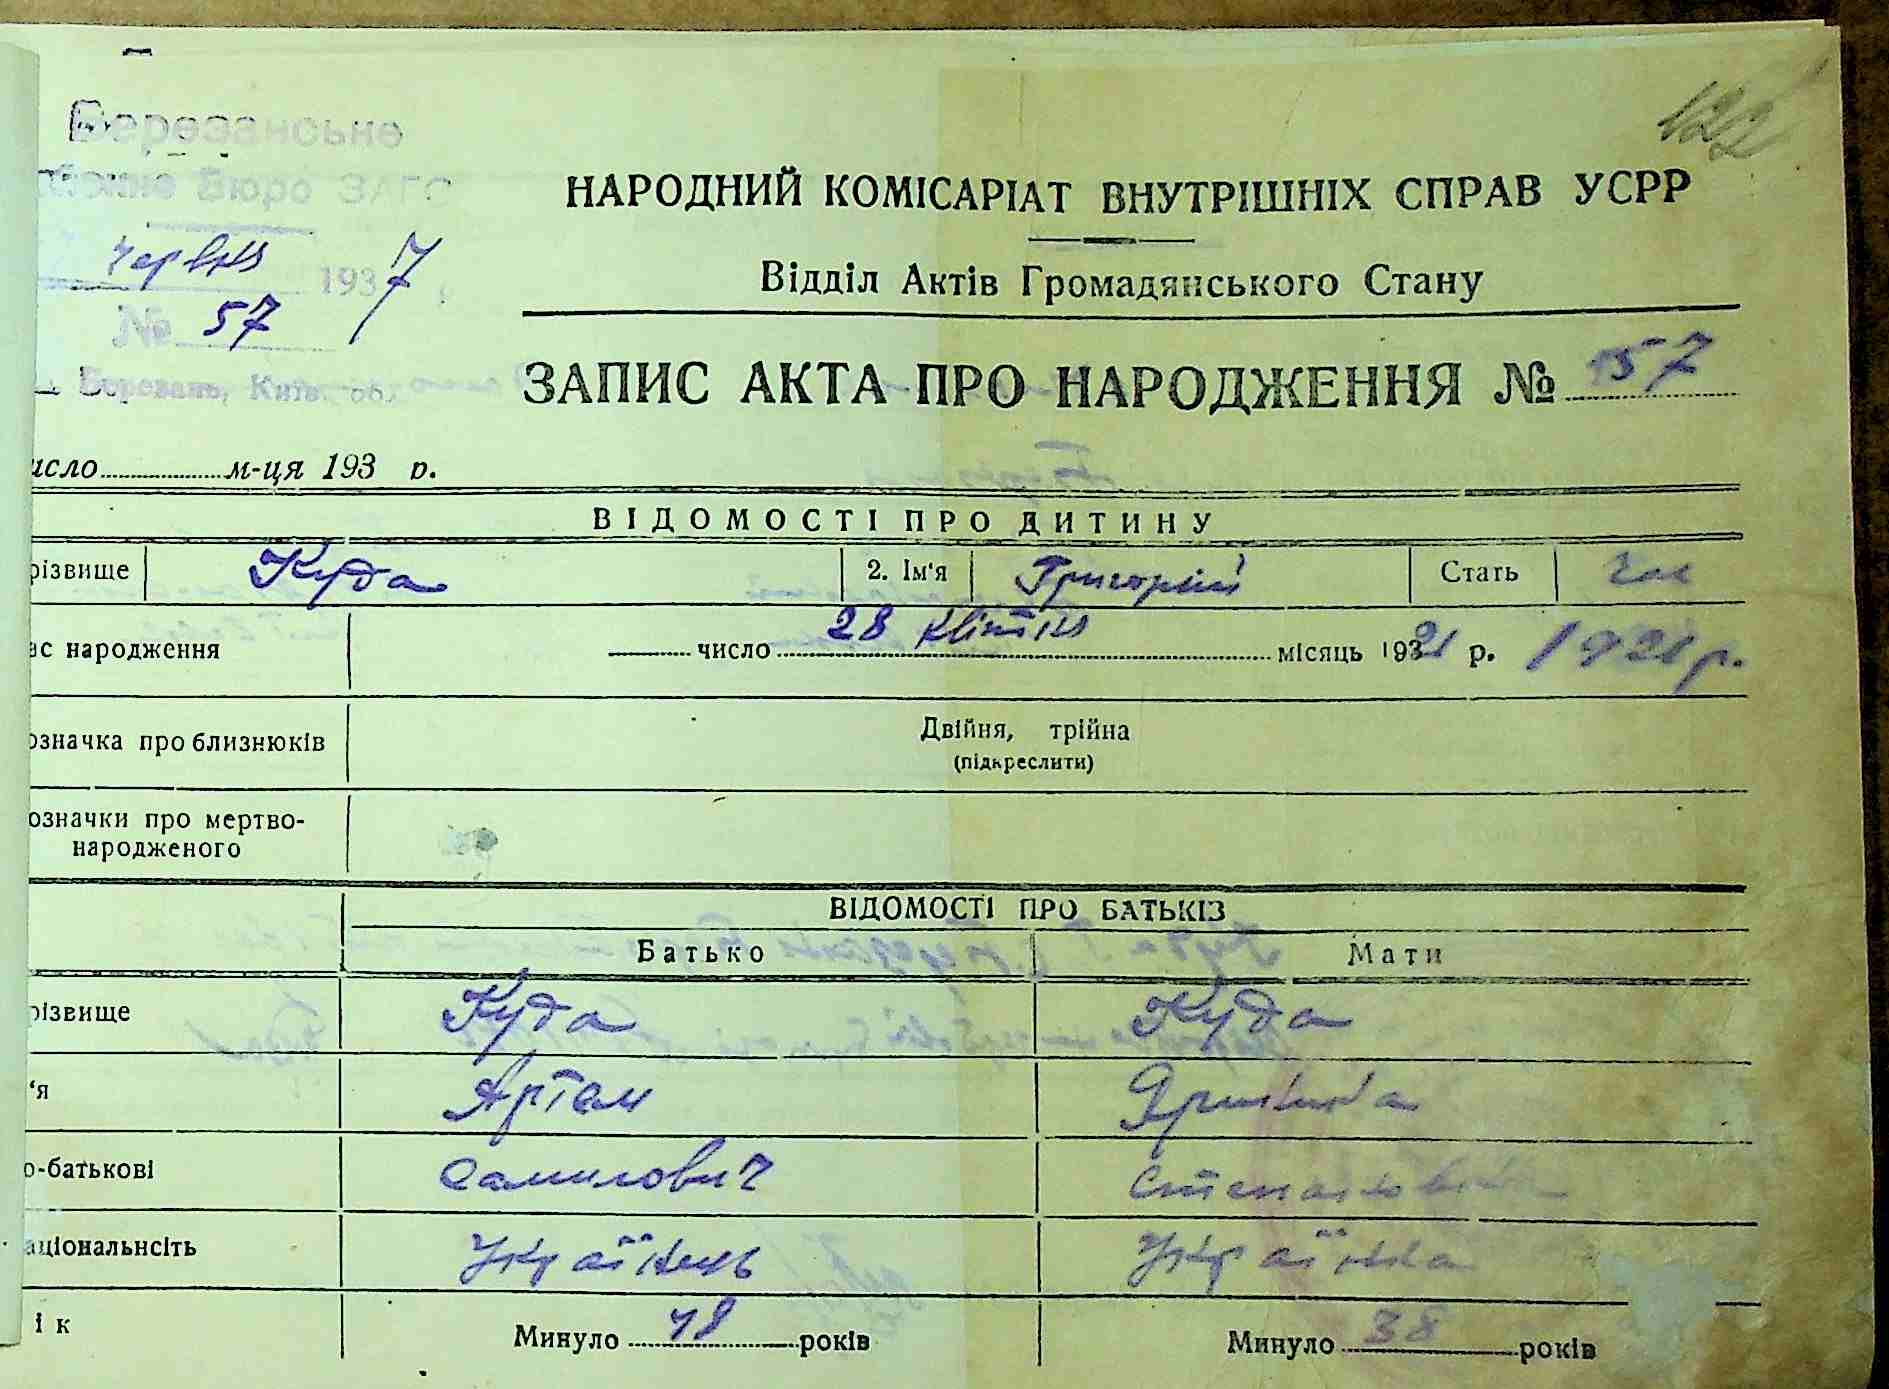 122
Березанське
Бюро ЗАГС
червня 1937
№ 57
Березань, Київ. об.
НАРОДНИЙ КОМІСАРІАТ ВНУТРІШНІХ СПРАВ УСРР
Відділ Актів Громадянського Стану
ЗАПИС АКТА ПРО НАРОДЖЕННЯ № 157
исло м-ця 193 р.
ВІДОМОСТІ ПРО ДИТИНУ
різвище Куда 2. Ім'я Григорій Стать чол
ас народження число 28 квітня місяць 1921 р. 1921 р.
означка про близнюків Двійня, трійна
(підкреслити)
означки про мертво-
народженого
ВІДОМОСТІ ПРО БАТЬКІВ
Батько Мати
різвище Куда Куда
'я Артем
о-батькові Самилович Степановна
аціональнсіть Українець Українка
ік Минуло 48 років Минуло 38 років